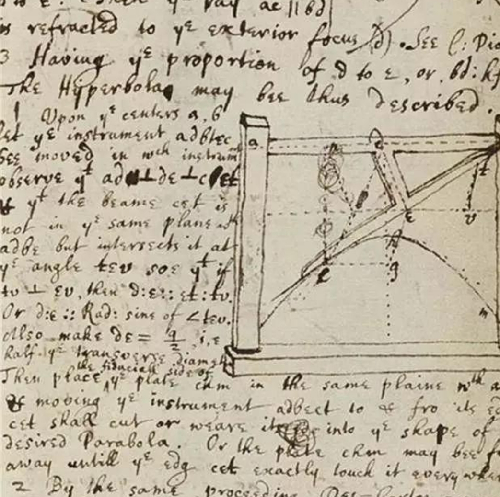 is refracted to yᵉ exterior focus (d). See C: Di
3 Having yᵉ proportion of d to e, or, bd:
The Hyperbola may bee thus described.
1 Upon yᵉ centers a, b
let yᵉ instrument adbtec
bee moved in wch instrum
observe yᵗ ad⊥de⊥cet
& yᵗ the beame cet is
not in yᵉ same plane wᵗ
adbe but intersects it at
yᵉ angle tev soe yᵗ if
tv ⊥ ev, then d:e::et:tv.
Or d:e :: Rad: sine of ∠tev.
Also make de = q/2, i.e.
half yᵉ transverse diamet
Then place yᵉ fiduciall side of yᵉ plate chm in the same plaine wᵗʰ a
& moving yᵉ instrument adbect to & fro its e
cet shall cut or weare it into yᵉ shape of
desired Parabola. Or the plate chm may bee f
away untill yᵉ edg cet exactly touch it everywhe
2 By the same proceeding Des
a
e
t
v
c
h
g
m